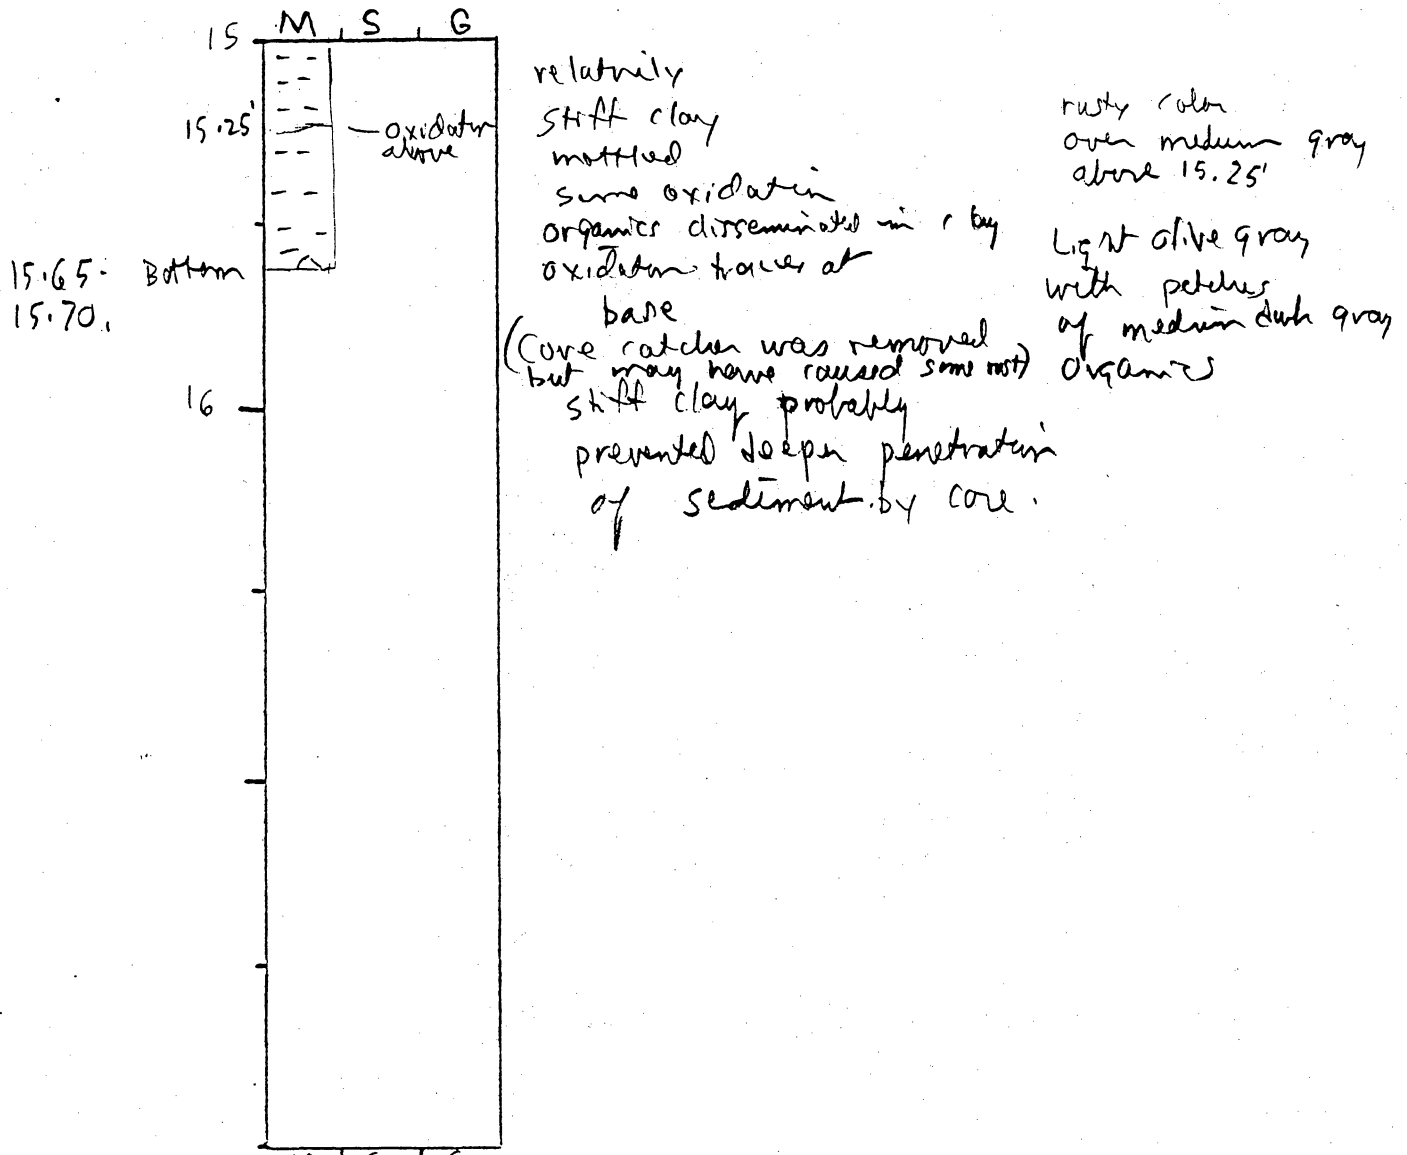 M S G
15
15.25'
— oxidation
above
15.65- Bottom
15.70.
16
relatively
stiff clay
mottled
some oxidation
organics disseminated in clay
oxidation traces at
base
(Core catcher was removed
but may have caused some rust)
stiff clay probably
prevented deeper penetration
of sediment by core.
rusty color
over medium gray
above 15.25'
Light olive gray
with patches
of medium dark gray
organics